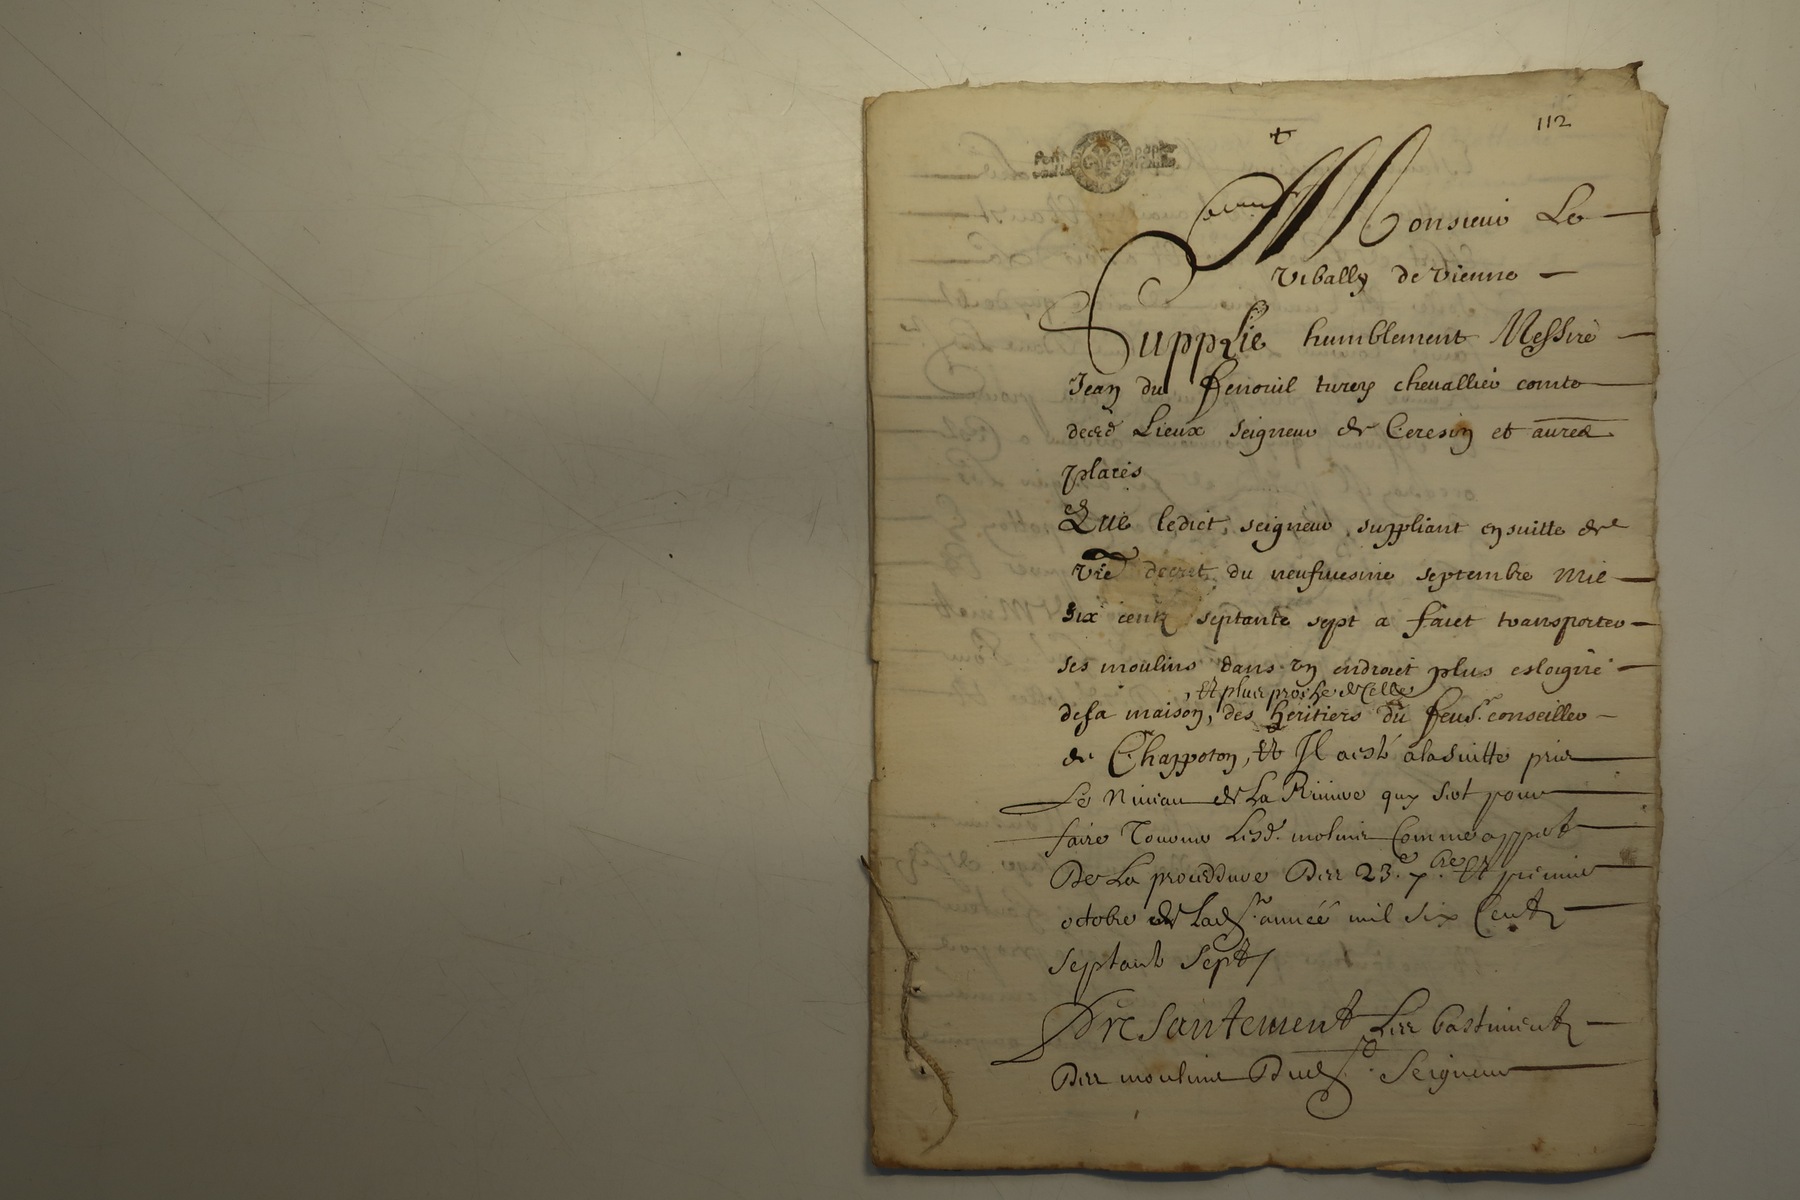 112
Petit papier
Monsieur Le
vibally de vienne
Supplie humblement Messire
Jean du fenouil turey chevallier comte
Lieux seigneur de Ceresin et aures
places
Que ledict, seigneur suppliant ensuitte de
vre decret du neufviesme septembre mil
six centz septante sept a faict transporter
ses moulins dans un endroict plus esloigné
, et plus proche de celle
de sa maison, des heritiers du feu sr. conseiller
de Chappoton, et Il a esté a la suitte pris
Le Niveau de La Riviere quy sert pour
faire Tourner Lesd. moulins Comme appert
De La proceddure Des 23.e 7.bre et premier
octobre de Lad. année mil six Centz
septante sept /
Presantement Les bastimentz
Des moulins Dud. Seigneur